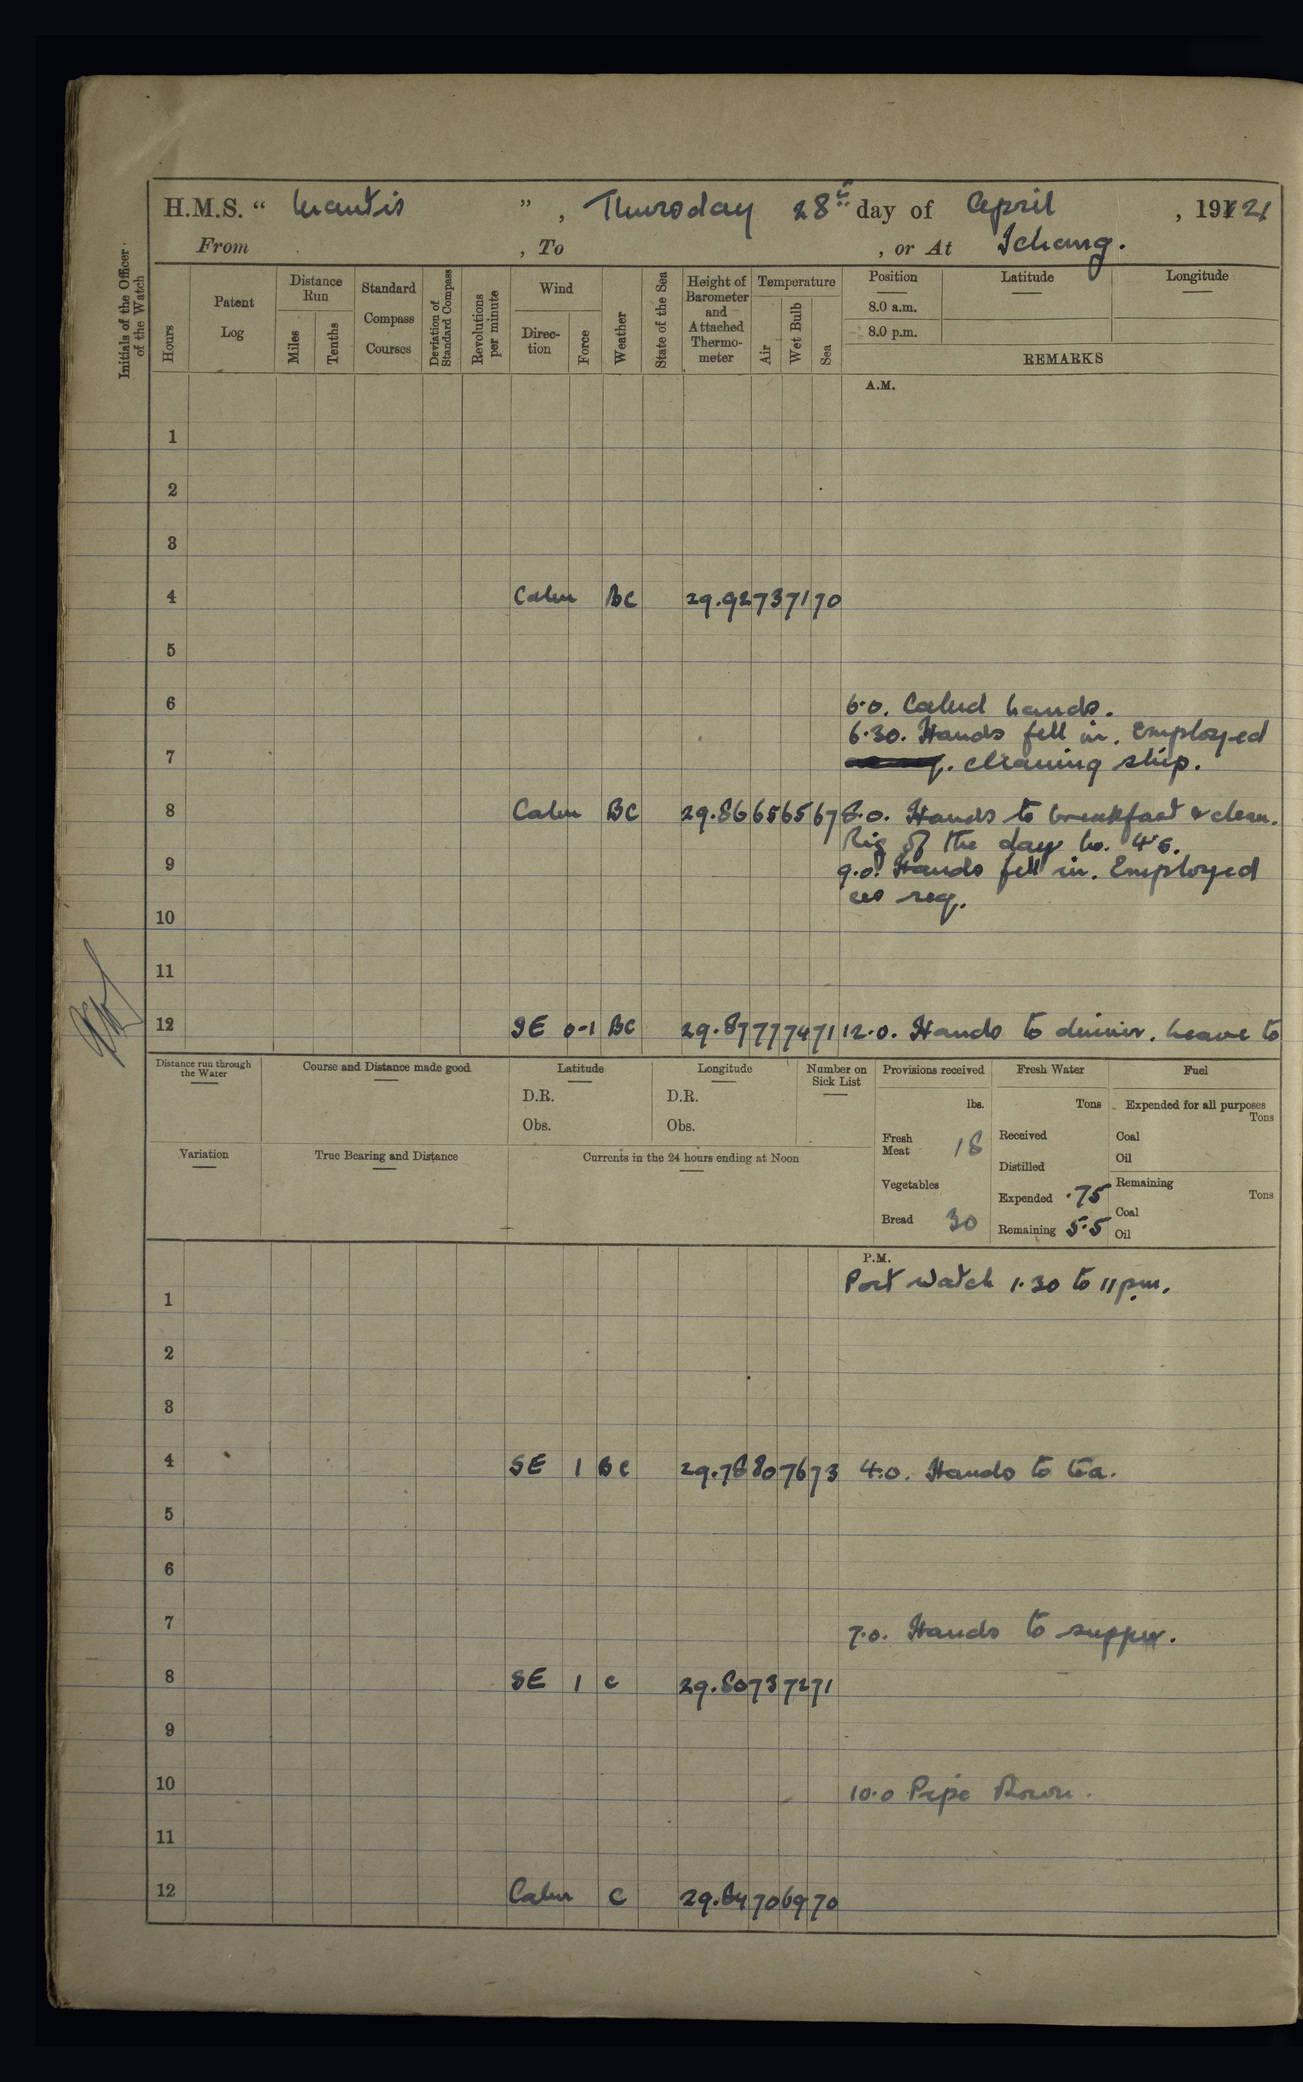 H.M.S. “ Mantis ” , Thursday 28th day of April , 1921
From , To , or At Ichang.
Initials of the Officer of the Watch
Hours
Patent Log
Distance Run
Miles
Tenths
Standard Compass Courses
Deviation of Standard Compass
Revolutions per minute
Wind
Direction
Force
Weather
State of the Sea
Height of Barometer and Attached Thermometer
Temperature
Air
Wet Bulb
Sea
Position Latitude Longitude
8.0 a.m.
8.0 p.m.
REMARKS
A.M.
1
2
3
4 Calm BC 29.92 73 71 70
5
6 6.0. Called hands.
6.30. Hands fell in. Employed
7 cleaning ship.
8 Calm BC 29.86 65 65 67 8.0. Hands to breakfast & clean.
Rig of the day No. 4's.
9 9.0. Hands fell in. Employed
as req.
10
11
12 SE 0-1 BC 29.87 77 74 71 12.0. Hands to dinner. Leave to
Distance run through the Water
Course and Distance made good
Latitude
D.R.
Obs.
Longitude
D.R.
Obs.
Number on Sick List
Provisions received
lbs.
Fresh Meat 18
Vegetables
Bread 30
Fresh Water
Tons
Received
Distilled
Expended .75
Remaining 5.5
Fuel
Expended for all purposes
Tons
Coal
Oil
Remaining
Tons
Coal
Oil
Variation
True Bearing and Distance
Currents in the 24 hours ending at Noon
P.M.
Port Watch 1.30 to 11 p.m.
1
2
3
4 SE 1 BC 29.78 80 76 73 4.0. Hands to tea.
5
6
7 7.0. Hands to supper.
8 SE 1 C 29.80 73 72 71
9
10 10.0 Pipe Down.
11
12 Calm C 29.84 70 69 70